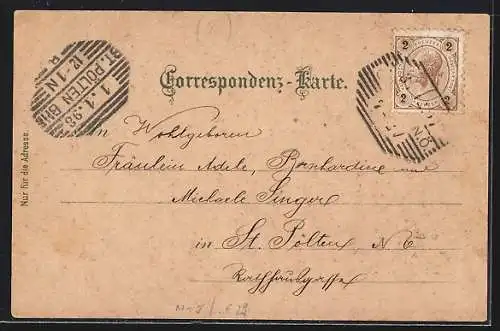 Correspondenz-Karte.
2 2
2 2
ST. PÖLTEN BHF
1.1.98
12.1N
Nur für die Adresse.
An Wohlgeboren
Fräulein Adele, Bernhardine und
Michaele Singer
in St. Pölten, N. Ö
Rathhausgasse